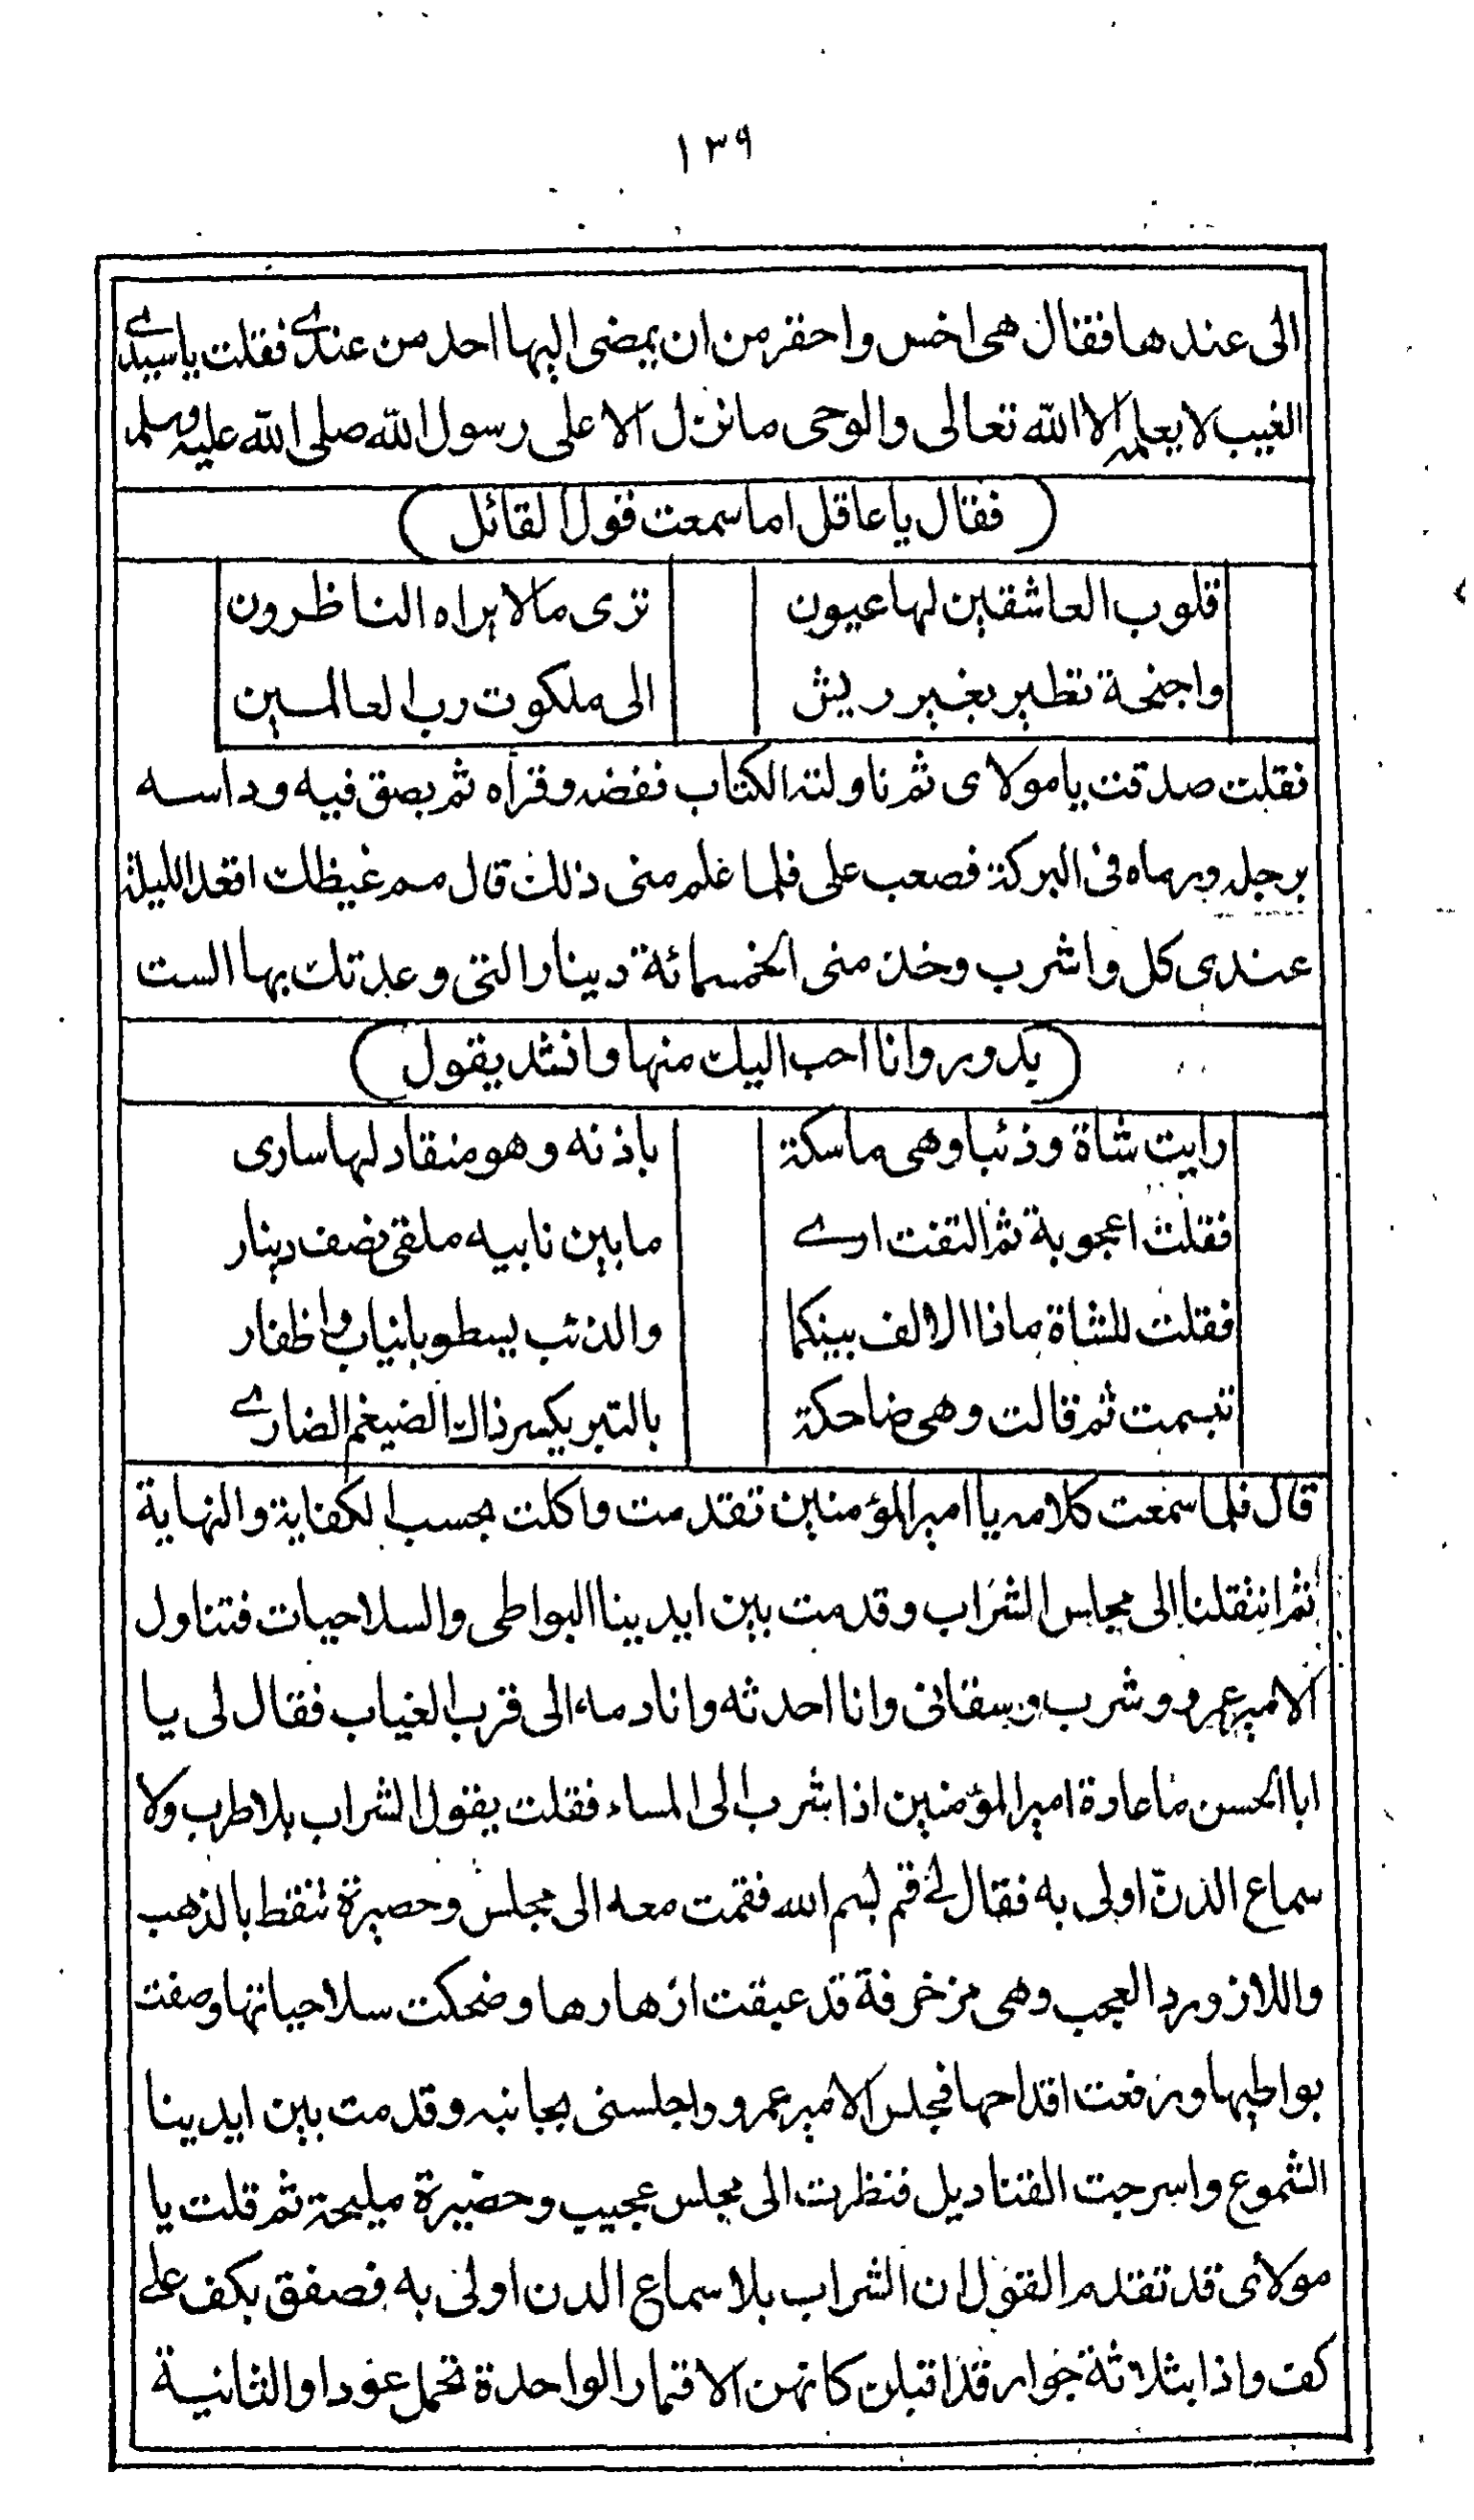 ١٣٩
الى عندها فقال هى اخس واحقر من ان يمضى اليها احد من عندى فقلت يا سيدى
الغيب لا يعلمه الا الله تعالى والوحى ما نزل الا على رسول الله صلى الله عليه وسلم
(فقال يا عاقل اما سمعت قول القائل)
قلوب العاشقين لها عيون ترى ما لا يراه الناظرون
واجنحة تطير بغير ريش الى ملكوت رب العالمين
فقلت صدقت يا مولاى ثم ناولته الكتاب ففضه وقرأه ثم بصق فيه وداسه
برجله ورماه فى البركة فصعب على فلما علم منى ذلك قال مم غيظك اقعد الليلة
عندى كل واشرب وخذ منى الخمسمائة دينار التى وعدتك بها الست
(بدور وانا احب اليك منها وانشد يقول)
رايت شاة وذئبا وهى ماسكة باذنه وهو منقاد لها سارى
فقلت اعجوبة ثم التفت ارى ما بين نابيه ملقى نصف دينار
فقلت للشاة ماذا الالف بينكما والذئب يسطو بانياب واظفار
تبسمت ثم قالت وهى ضاحكة بالتبر يكسر ذاك الضيغم الضارى
قال فلما سمعت كلامه يا امير المؤمنين تقدمت واكلت بحسب الكفاية والنهاية
ثم انتقلنا الى مجلس الشراب وقدمت بين ايدينا البواطى والسلاحيات فتناول
الامير عمرو وشرب وسقانى وانا احدثه وانادمه الى قرب الغياب فقال لى يا
ابا الحسن ما عادة امير المؤمنين اذا شرب الى المساء فقلت يقول الشراب بلا طرب ولا
سماع الدن اولى به فقال لى قم بسم الله فقمت معه الى مجلس وحصيرة تنقط بالذهب
واللازورد العجب وهى مزخرفة قد عبقت ازهارها وضحكت سلاحياتها وصفت
بواطيها ورفعت اقداحها فجلس الامير عمرو واجلسنى بجانبه وقدمت بين ايدينا
الشموع واسرجت القناديل فنظرت الى مجلس عجيب وحضيرة مليحة ثم قلت يا
مولاى قد تقدم القول ان الشراب بلا سماع الدن اولى به فصفق بكف على
كف واذا بثلاثة جوار قد اقبلن كانهن الاقمار الواحدة تحمل عودا والثانية